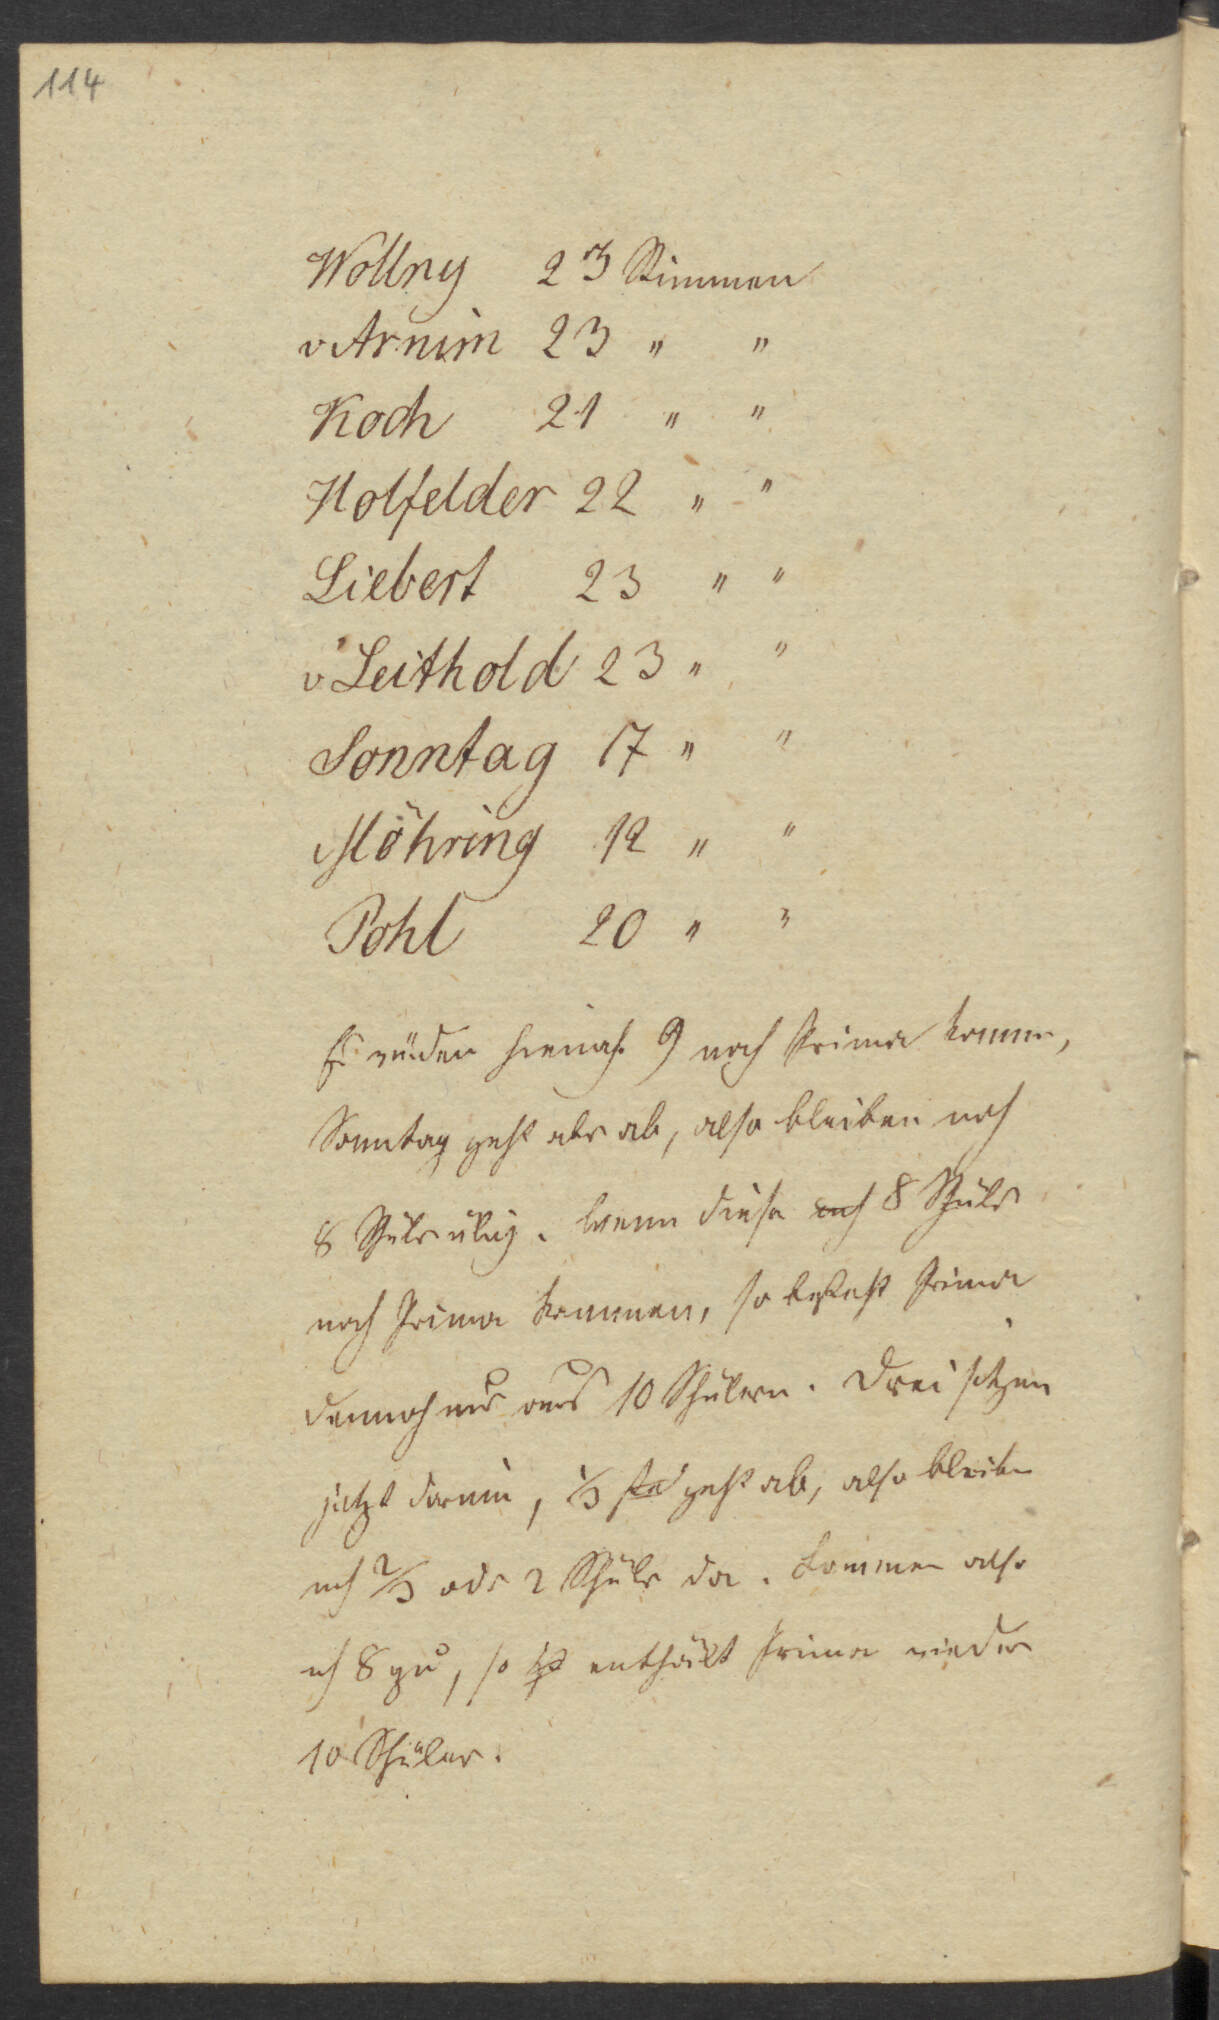 114
Wollny 23 Stimmen
v Arnim 23 " "
Koch 21 " "
Holfelder 22 " "
Liebert 23 " "
v Leithold 23 " "
Sonntag 17 " "
Möhring 12 " "
Pohl 20 " "
Es würden hienach 9 nach Prima kommen,
Sonntag geht aber ab, also bleiben noch
8 Schüler übrig. Wenn diese auch 8 Schüler
nach Prima kommen, so besteht Prima
dennoch nur aus 10 Schülern. Drei sitzen
jetzt darin, 1/3 geht ab, also bleiben
noch 2/3 oder 2 Schüler da. Kommen also
noch 8 zu, so ist enthält Prima wieder
10 Schüler.